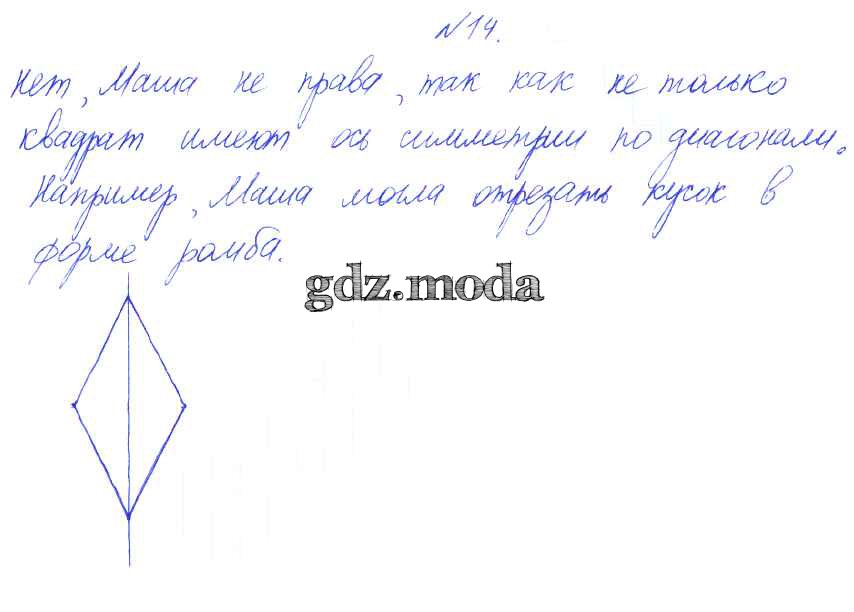 №14.
Нет, Маша не права, так как не только
квадрат имеют ось симметрии по диагонали.
Например, Маша могла отрезать кусок в
форме ромба.
gdz.moda